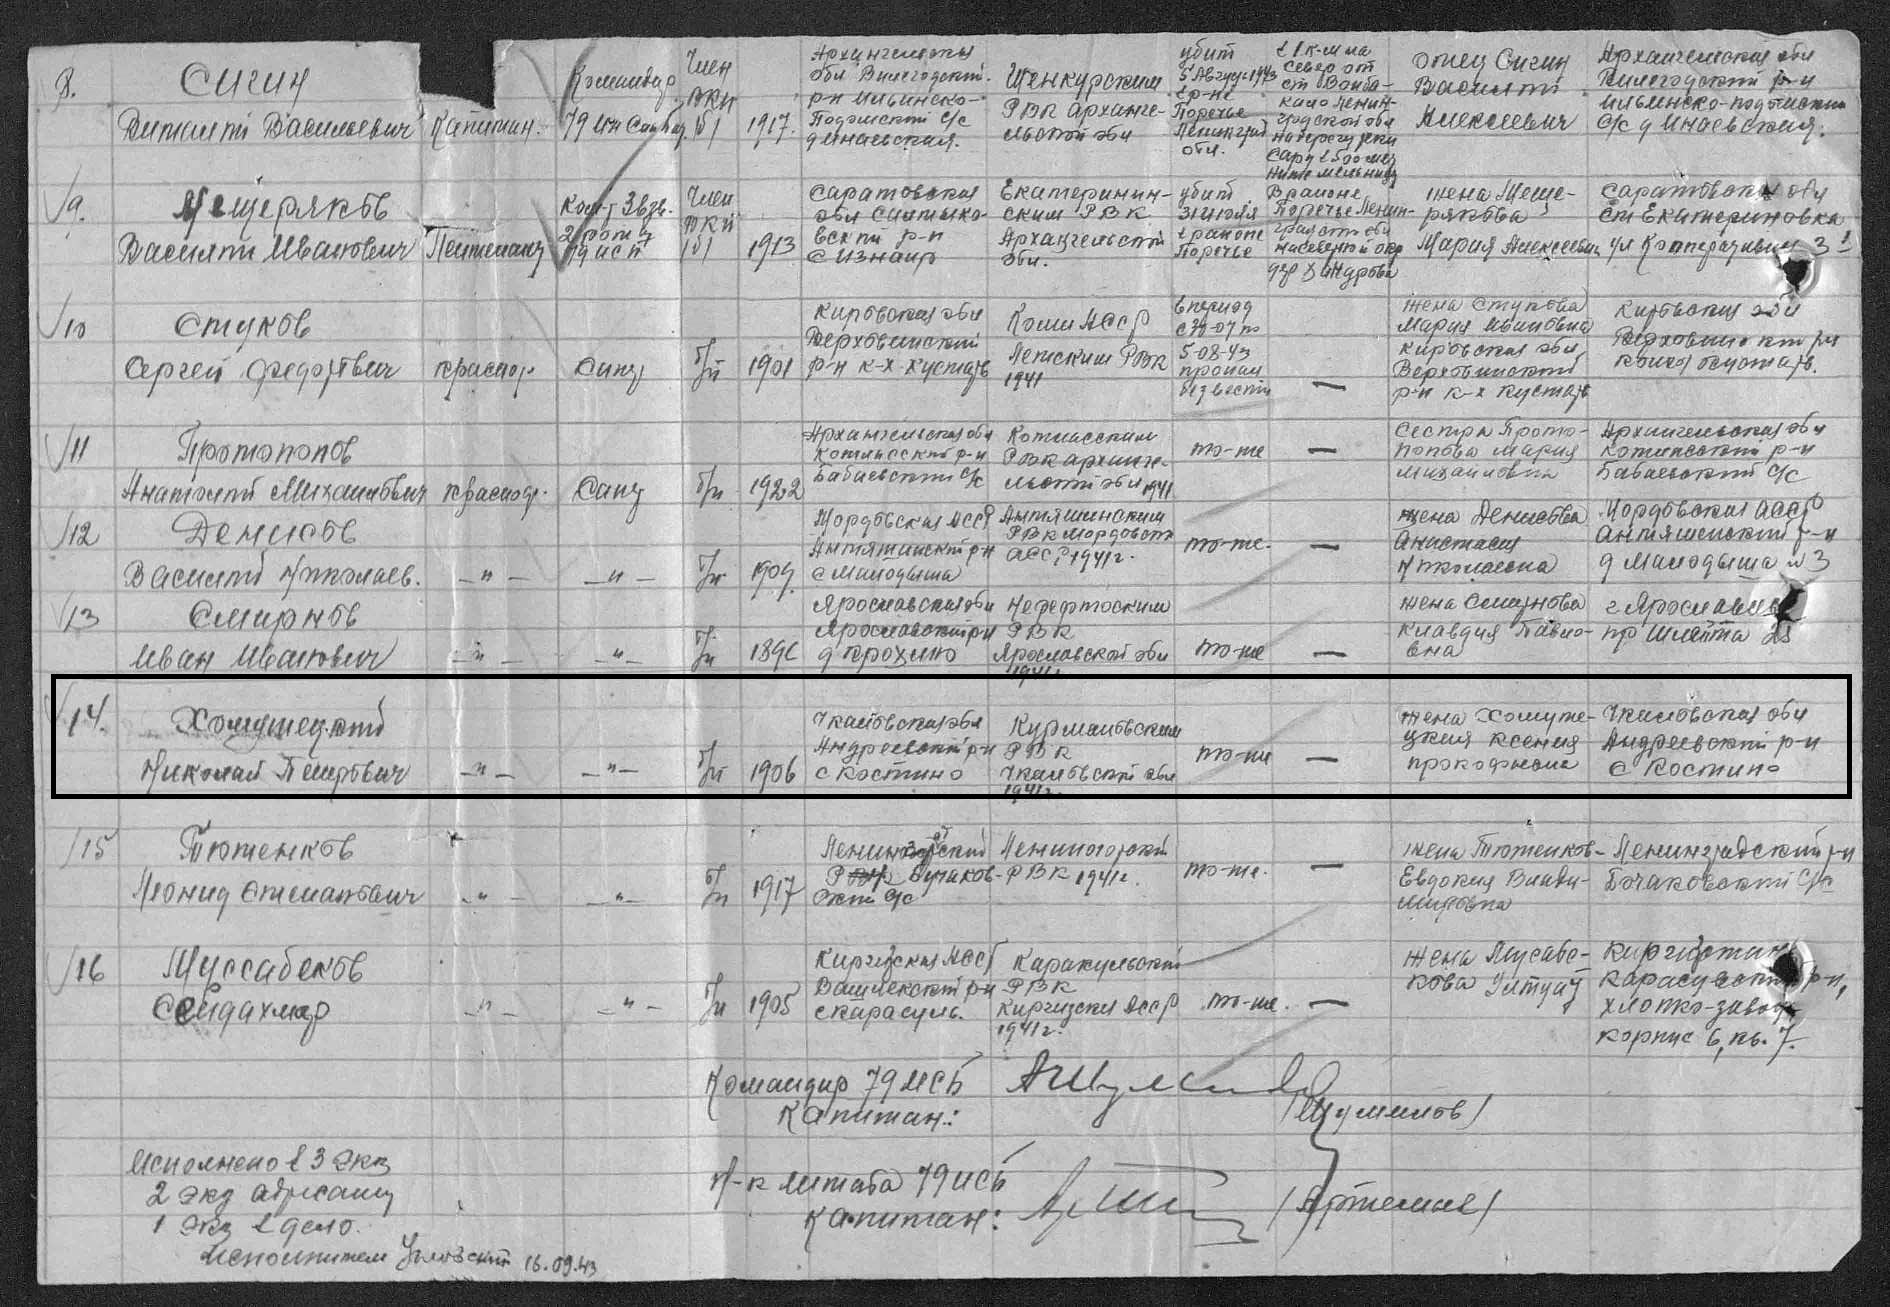 8.
Сигин
Виталий Васильевич
Капитан.
Командир
79 ИнСапбат
Член
ВКП
(б)
1917.
Архангельская
обл Вилегодский
р-н Ильинско-
Подомский с/с
д Инаевская.
Шенкурским
РВК Арханге-
льской обл
убит
5 Август 1943
в р-не
Поречье
Ленинград
обл.
в 1 к-м на
север от
ст Войба-
кало Ленин-
градской обл
на берегу реки
ниже мельницы
отец Сигин
Василий
Алексеевич
Архангельская обл
Вилегодский р-н
Ильинско-подомский
с/с д Инаевская.
9.
Мещеряков
Василий Иванович
Лейтенант
Ком-р 3 взв.
2 роты
Член
ВКП
(б)
1913
Саратовская
обл Салтыко-
вский р-н
с Изнаир
Екатеринин-
ским РВК
Архангельской
обл.
убит
31 июля
в районе
Поречье
В районе
Поречье Ленин-
градской обл
на северной окр
жена Меще-
рякова
Мария Алексеевна
Саратовская обл
ст Екатериновка
ул Кооперативная 31
10
Стуков
Сергей Федорович
красноар.
Сапер
б/п
1901
Кировская обл
Верховинский
р-н к-х Кустарь
Коми АССР
Летским РВК
1941
в период
с 30-07 по
5-08-43
пропал
безвести
—
жена Стукова
Мария Ивановна
Кировская обл
Верховинский
р-н к-х Кустарь
Кировская обл
Верховинский р-н
колхоз Кустарь.
11
Протопопов
Анатолий Михайлович
красноар.
Сапер
б/п
1922
Архангельская обл
Котласский р-н
Бабаевский с/с
Котласским
РВК Арханге-
льской обл 1941
то-же
—
сестра Прото-
попова Мария
Михайловна
Архангельская обл
Котласский р-н
Бабаевский с/с
12
Денисов
Василий Николаев.
—"—
—"—
б/п
1909.
Мордовская АССР
Антяшинский р-н
с Малодыша
Антяшинским
РВК Мордовской
АССР 1941г.
то-же.
—
жена Денисова
Анастасия
Николаевна
Мордовская АССР
Антяшинский р-н
д Малодыша № 3
13
Смирнов
Иван Иванович
—"—
—"—
б/п
189
Ярославская обл
Ярославский р-н
д Прохино
РВК
Ярославской обл
1941г.
то-же
—
жена Смирнова
Клавдия Павло-
вна
г Ярославль
пр Шмидта 28
14.
Хомутецкий
Николай Петрович
—"—
—"—
б/п
1906
Чкаловская обл
Андреевский р-н
с Костино
Курманаевским
РВК
Чкаловской обл
1941г.
то-же
—
жена Хомуте-
цкая Ксения
Прокофьевна
Чкаловская обл
Андреевский р-н
с Костино
15
Тютенков
Леонид Степанович
—"—
—"—
б/п
1917
Лениногорский
РВК
с/с
Лениногорский
РВК 1941г.
то-же.
—
жена Тютенков-
Евдокия Влади-
мировна
Ленинградский р-н
Бучаковский с/с
16
Муссабеков
Сейдахмар
—"—
—"—
б/п
1905
Киргизская АССР
р-н
с Карасуль.
Каракульский
РВК
Киргизская АССР
1941г.
то-же.
—
жена Мусабе-
кова Ултуау
Киргизстан
Карасуский р-н,
хлопко-завод
корпус 6, кв. 7.
Командир 79 ИСБ
Капитан:
/Шумилов/
Исполнено в 3 экз
2 экз адресату
1 экз в дело.
Н-к штаба 79 ИСБ
Капитан:
/Артемьев/
Исполнитель 16.09.43